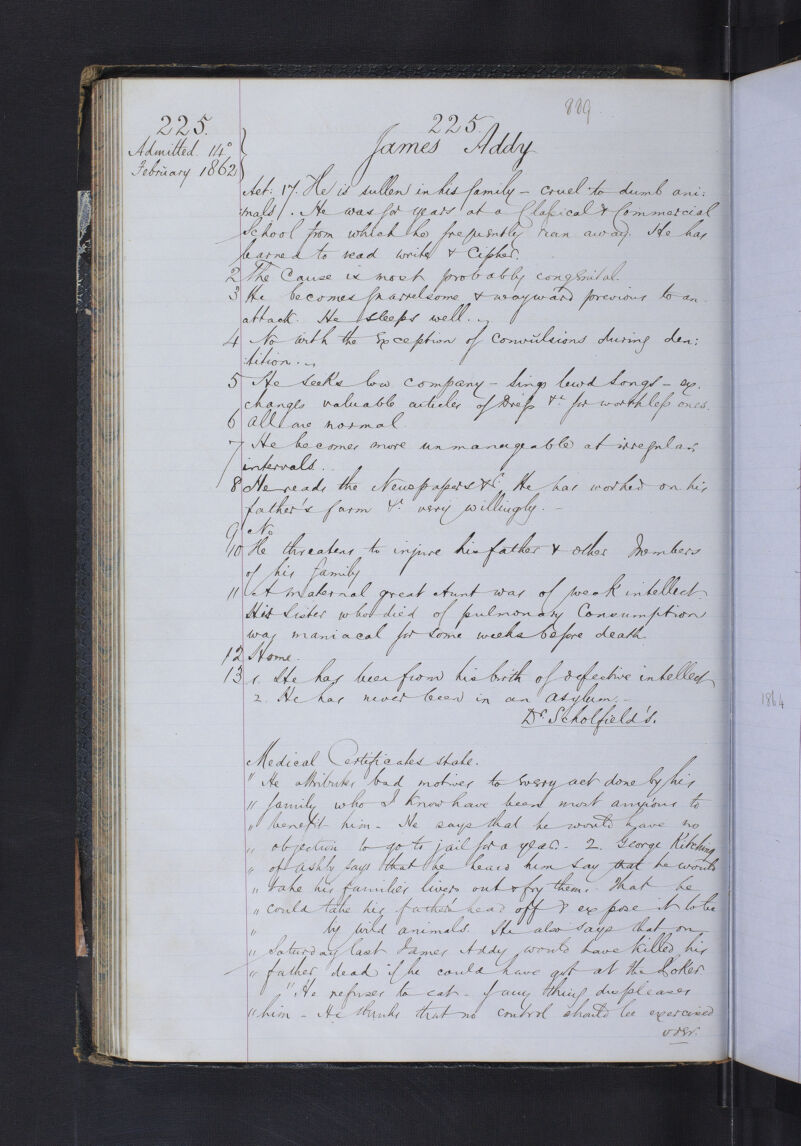 889
225.
225.
Admitted. 14°
February 1862
James Addy
Aet: 17. He is sullen in his family – cruel to dumb ani:
mals. He was for years at a Classical & Commercial
School from which he frequently ran away. He has
learned to read write & Cipher.
2 The Cause is most probably congenital.
3 He becomes quarrelsome & wayward previous to an
attack. He sleeps well.
4 No with the Exception of convulsions during den:
tition.
5 He seeks low company – sings lewd songs – ex.
changes valuable articles of Dress &c for worthless ones.
6 All are normal.
7 He becomes more unmanageable at irregular
intervals.
8 He reads the Newspapers &c. He has worked on his
father's farm &c. very willingly. –
9 No
10 He threatens to injure his father & other Members
of his family
11 A maternal great Aunt was of weak intellect.
His Sister who died of pulmonary Consumption
was maniacal for some weeks before death.
12 Home.
13 1. He has been from his birth of defective intellect
2. He has never been in an asylum. –
Dr. Scholfield's.
Medical Certificates state.
" He attributes bad motives to every act done by his
" family who I know have been most anxious to
" benefit him – He says that he would have no
" objection to go to jail for a year. – 2. George Kitching
" of Ashby says that he heard him say that he would
" take his families livers out & fry them. That he
" could take his father's head off & expose it to be
" by wild animals. He also says that on
" Saturday last James Addy would have killed his
" father dead if he could have got at the Poker
" He refuses to eat – if any thing displeases
" him – He thinks that no control should be exercised
over.
1864